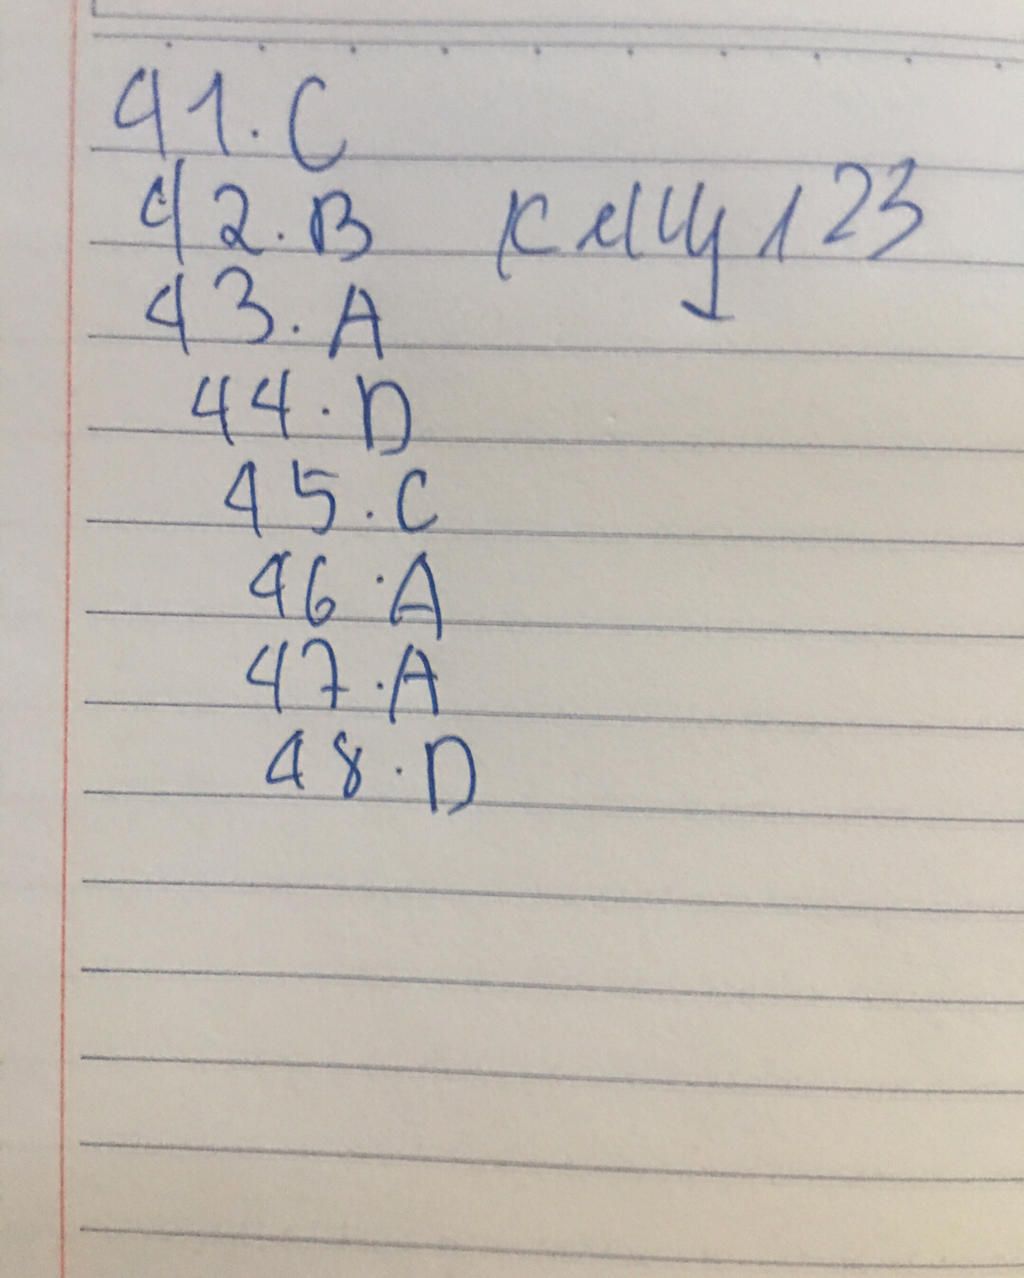 41. C
42. B Kelly 123
43. A
44. D
45. C
46. A
47. A
48. D